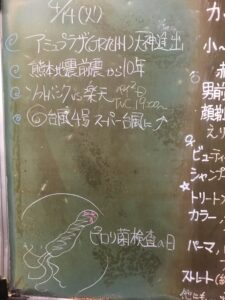 4/14(火)
アミュプラザ(JR九州)天神進出
熊本地震前震から10年
ソフトバンクvs楽天
⑥台風4号 スーパー台風に↗
ピロリ菌検査の日
カッ
小〜
男前
顔剃
えり
ビューティ
シャンプ
☆トリートメ
カラー,
パーマ,
ストレート(